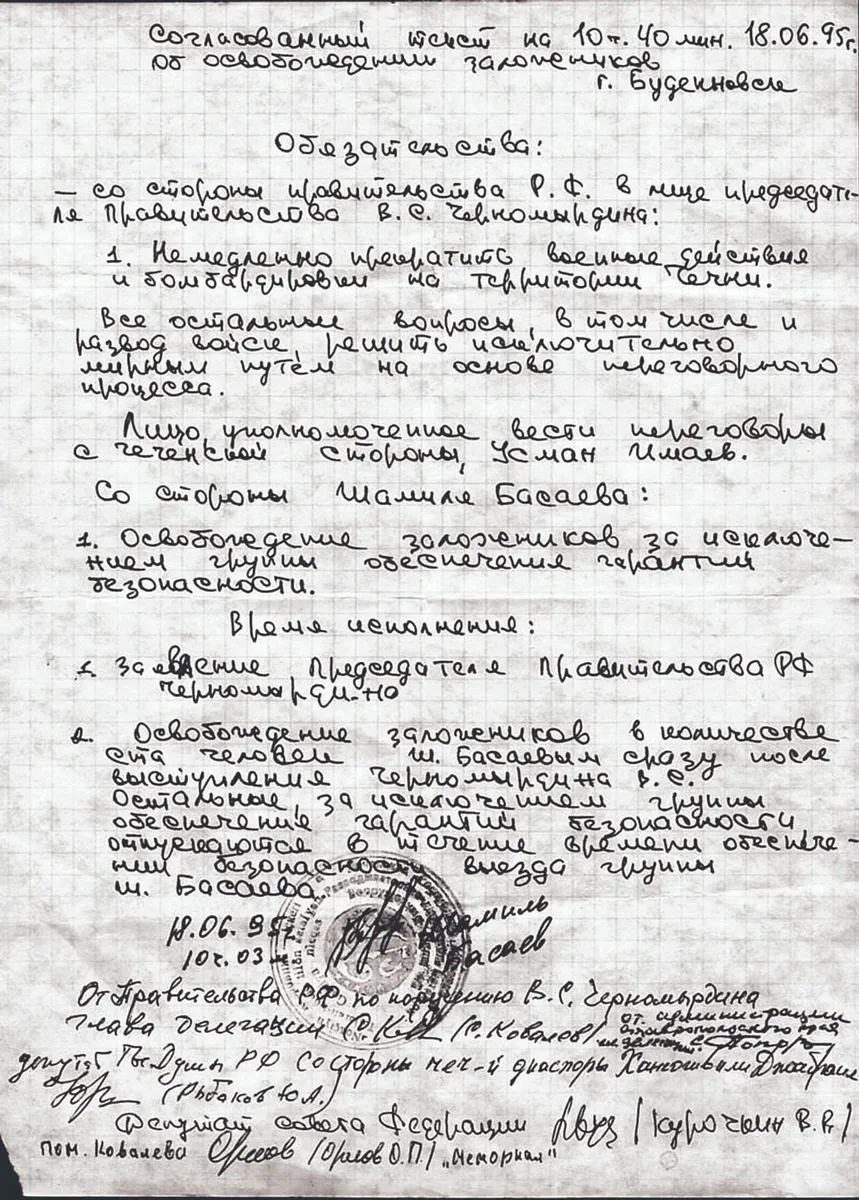 Согласованный текст на 10ч. 40 мин. 18.06.95г.
об освобождении заложников
г. Буденновск
Обязательства:
— со стороны правительства Р.Ф. в лице председате-
ля Правительства В.С. Черномырдина:
1. Немедленно прекратить военные действия
и бомбардировки на территории Чечни.
Все остальные вопросы, в том числе и
развод войск, решить исключительно
мирным путём на основе переговорного
процесса.
Лицо, уполномоченное вести переговоры
с чеченской стороны, Усман Имаев.
Со стороны Шамиля Басаева:
1. Освобождение заложников за исключе-
нием группы обеспечения гарантий
безопасности.
Время исполнения:
1. Заявление Председателя Правительства РФ
Черномырди-на
2. Освобождение заложников в количестве
ста человек Ш. Басаевым сразу после
выступления Черномырдина В.С.
Остальные, за исключением группы
обеспечения гарантий безопасности
отпускаются в течение времени обеспече-
нии безопасности выезда группы
Ш. Басаева
18.06.95г. Шамиль
10ч. 03 м Басаев
От Правительства РФ по поручению В.С. Черномырдина
Глава делегации (С. Ковалев) от администрации
Ставропольского края
депутат Гос. Думы РФ Со стороны чеч-й диаспоры Ханошвили
(Рыбаков Ю.А.)
Депутат совета Федерации /Курочкин В.В./
пом. Ковалева Орлов /Орлов О.П./ „Мемориал"